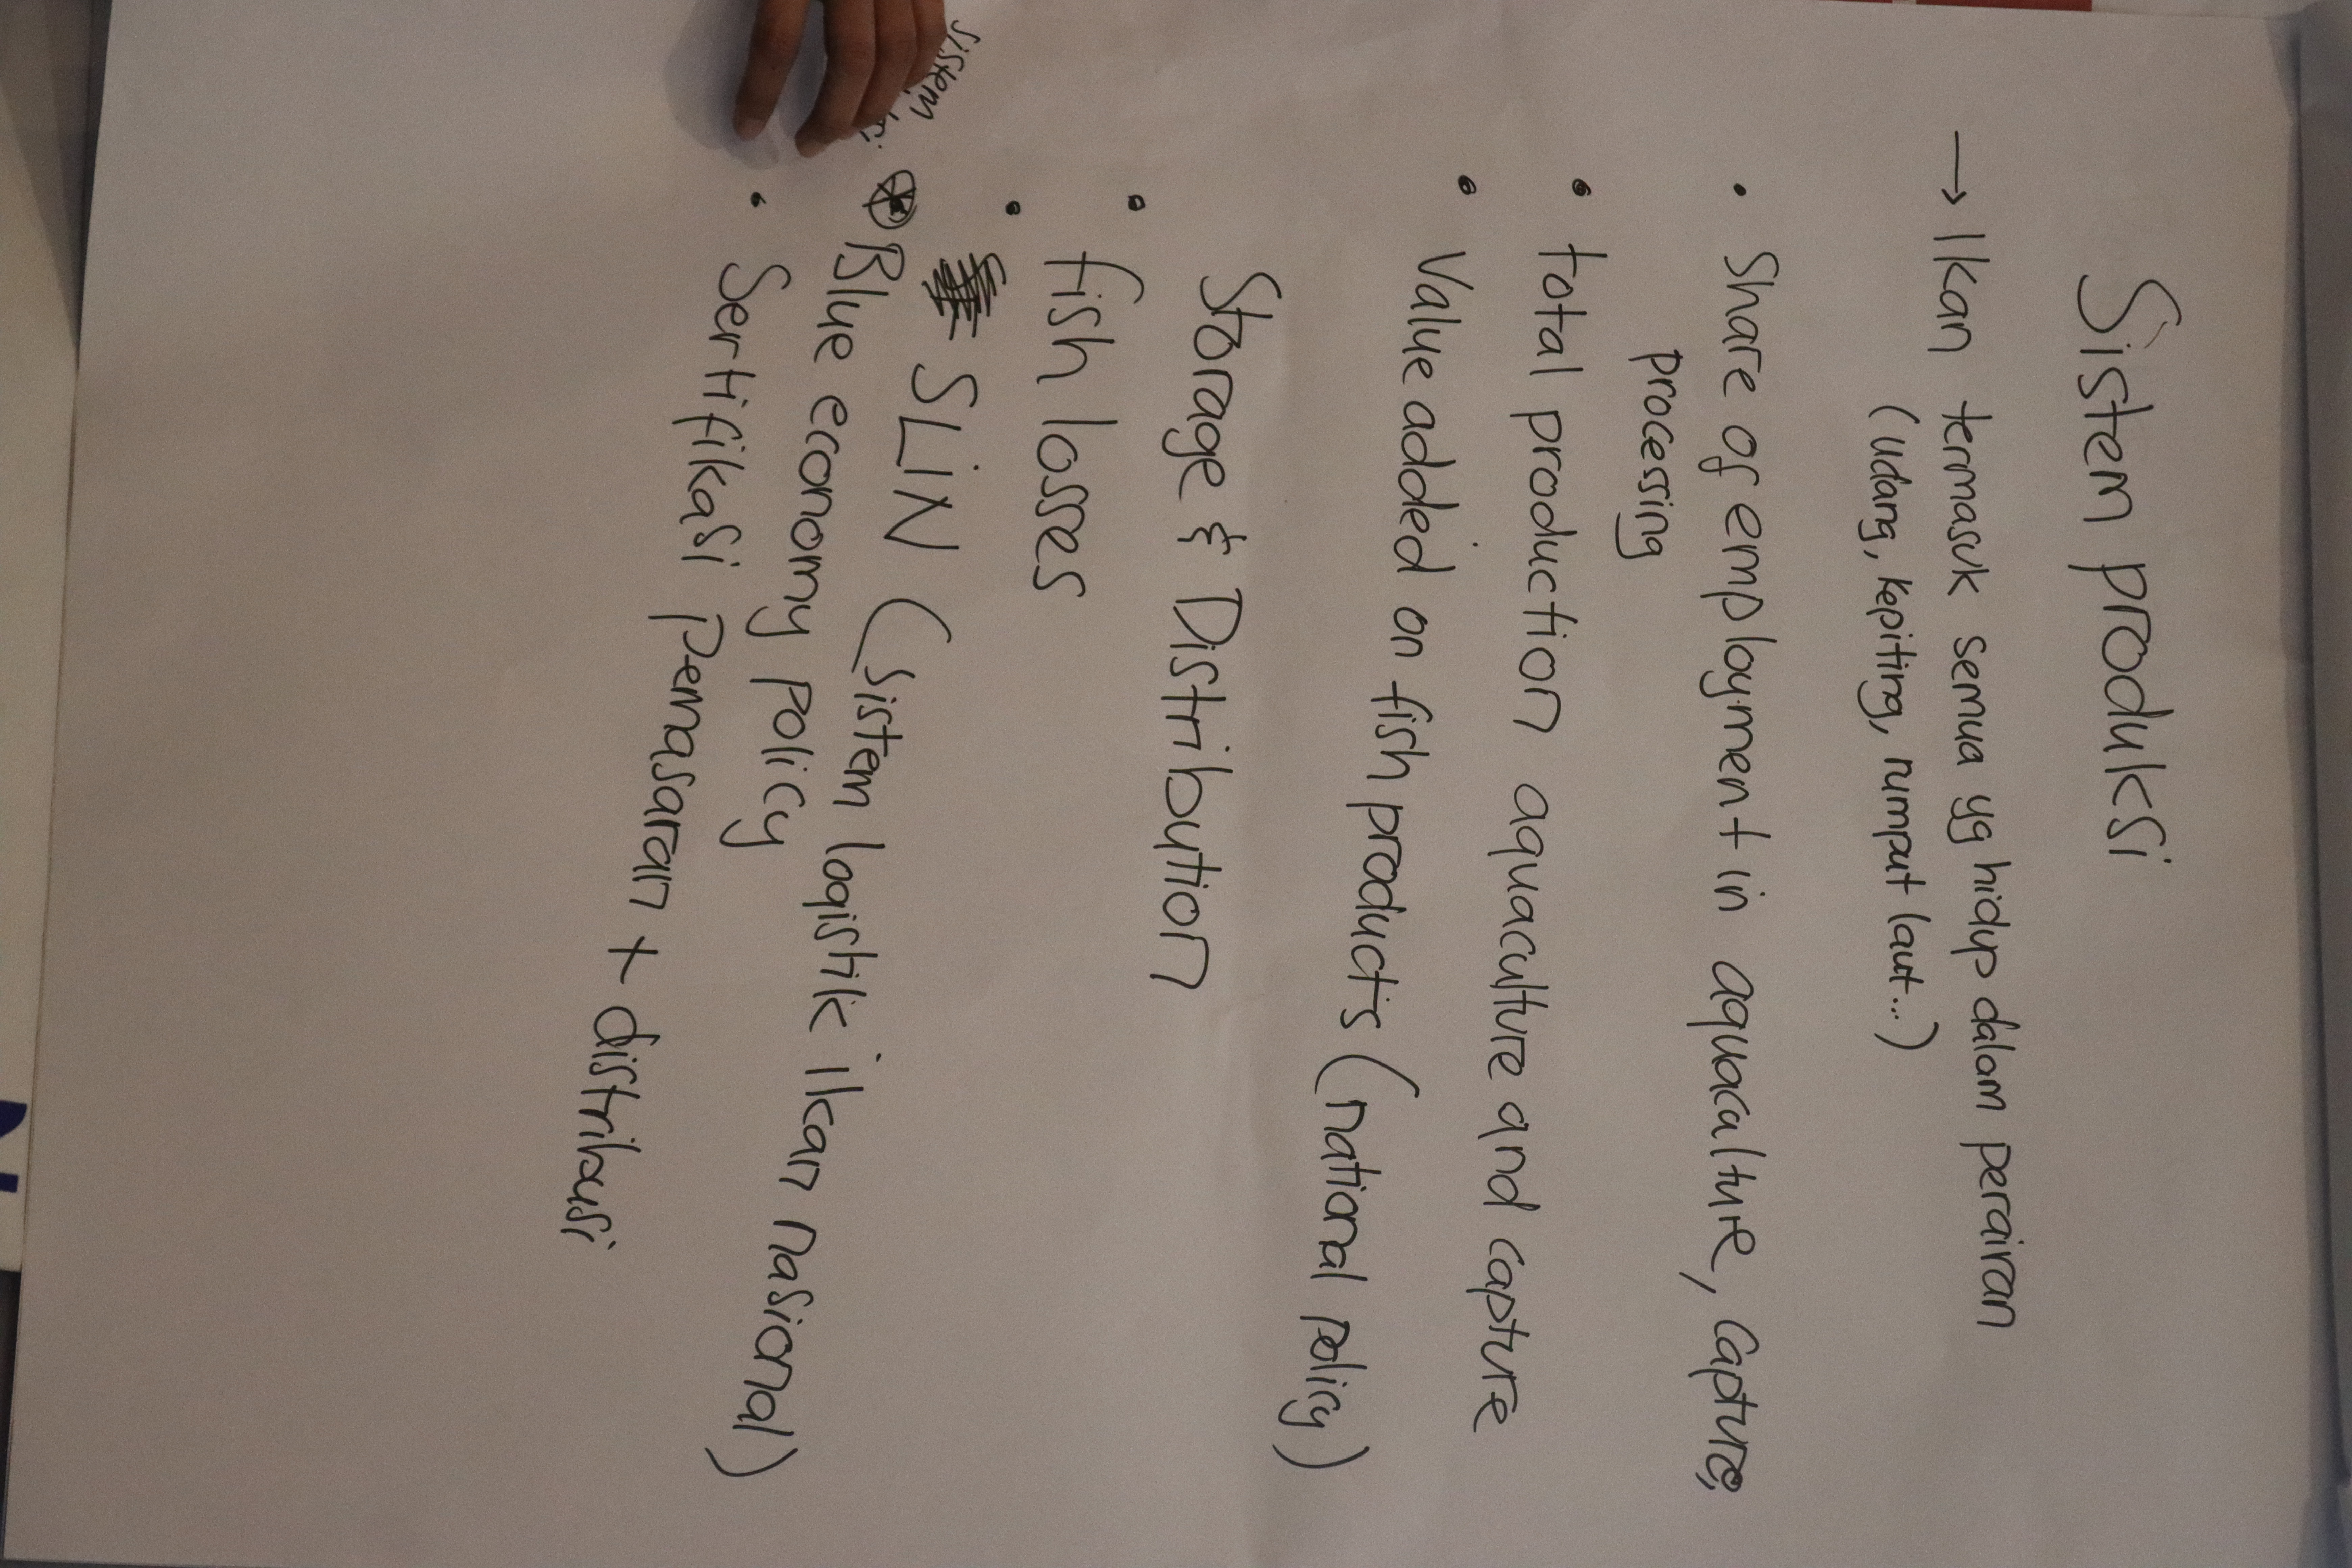 Sistem produksi
→ Ikan termasuk semua yg hidup dalam perairan
(udang, kepiting, rumput laut...)
• Share of employment in aquaculture, capture,
processing
• total production aquaculture and capture
• Value added on fish products (national policy)
Storage & Distribution
• fish losses
• SLIN (sistem logistik ikan nasional)
sistem
⊛ Blue economy policy
• Sertifikasi pemasaran + distribusi